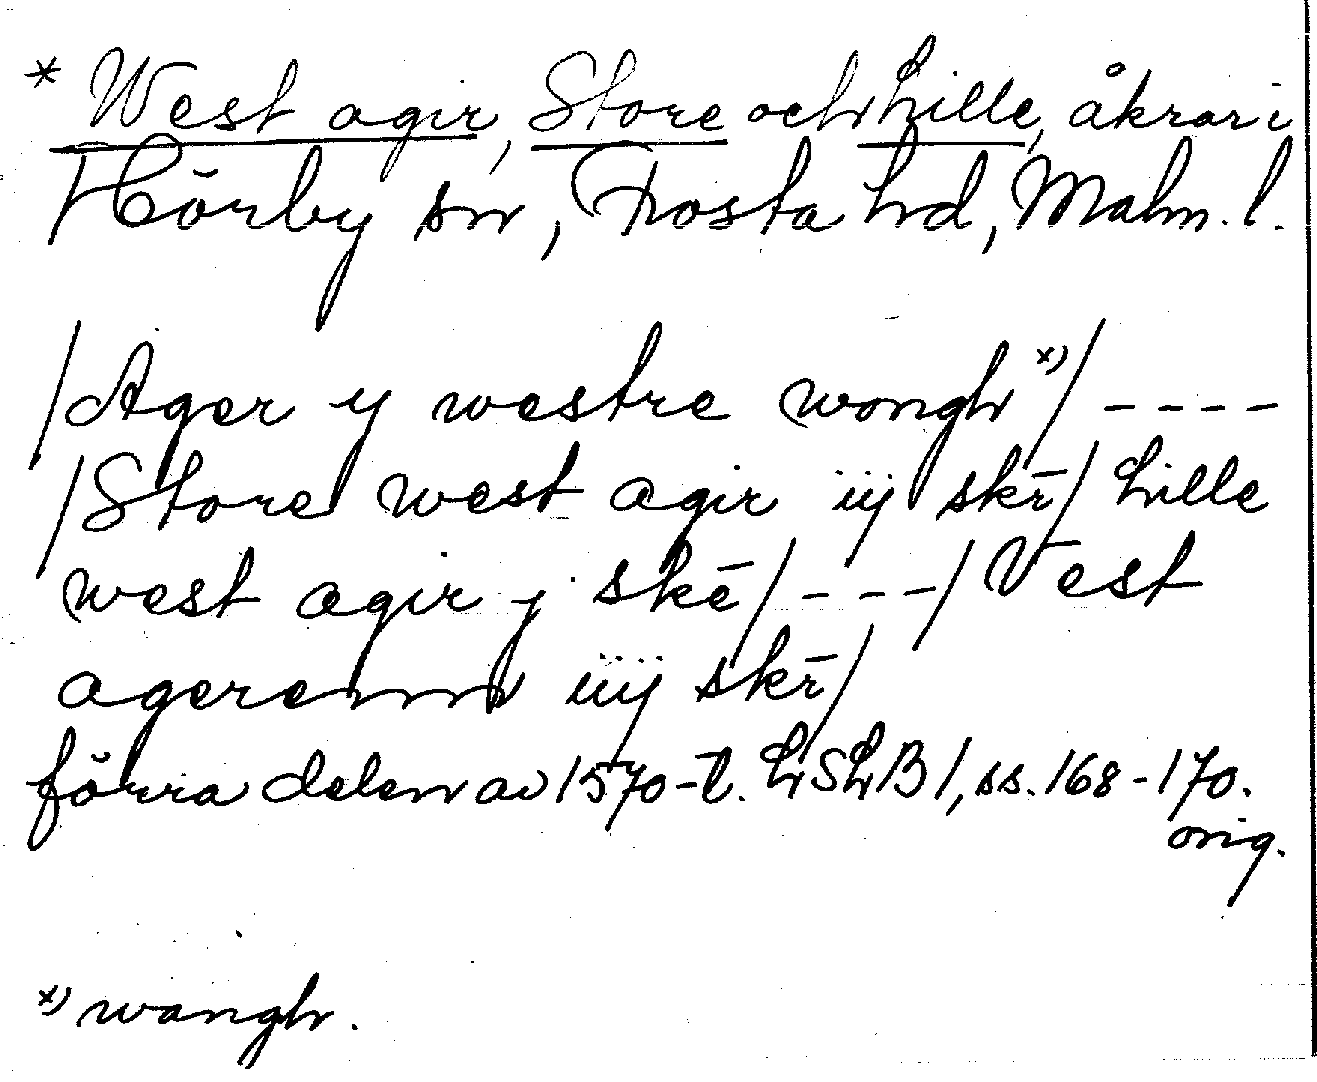 * West agir, Store och Lille, åkrar i
Hörby sn, Frosta hd, Malm. l.
/Ager y westre wongh *)/ ----
/Store west agir iij skr̄/ Lille
west agir j skē/ ---/ Vest
agerenn iiij skr̄/
förra delen av 1570-t. LSLB 1, ss. 168-170.
orig.
*) wangh.